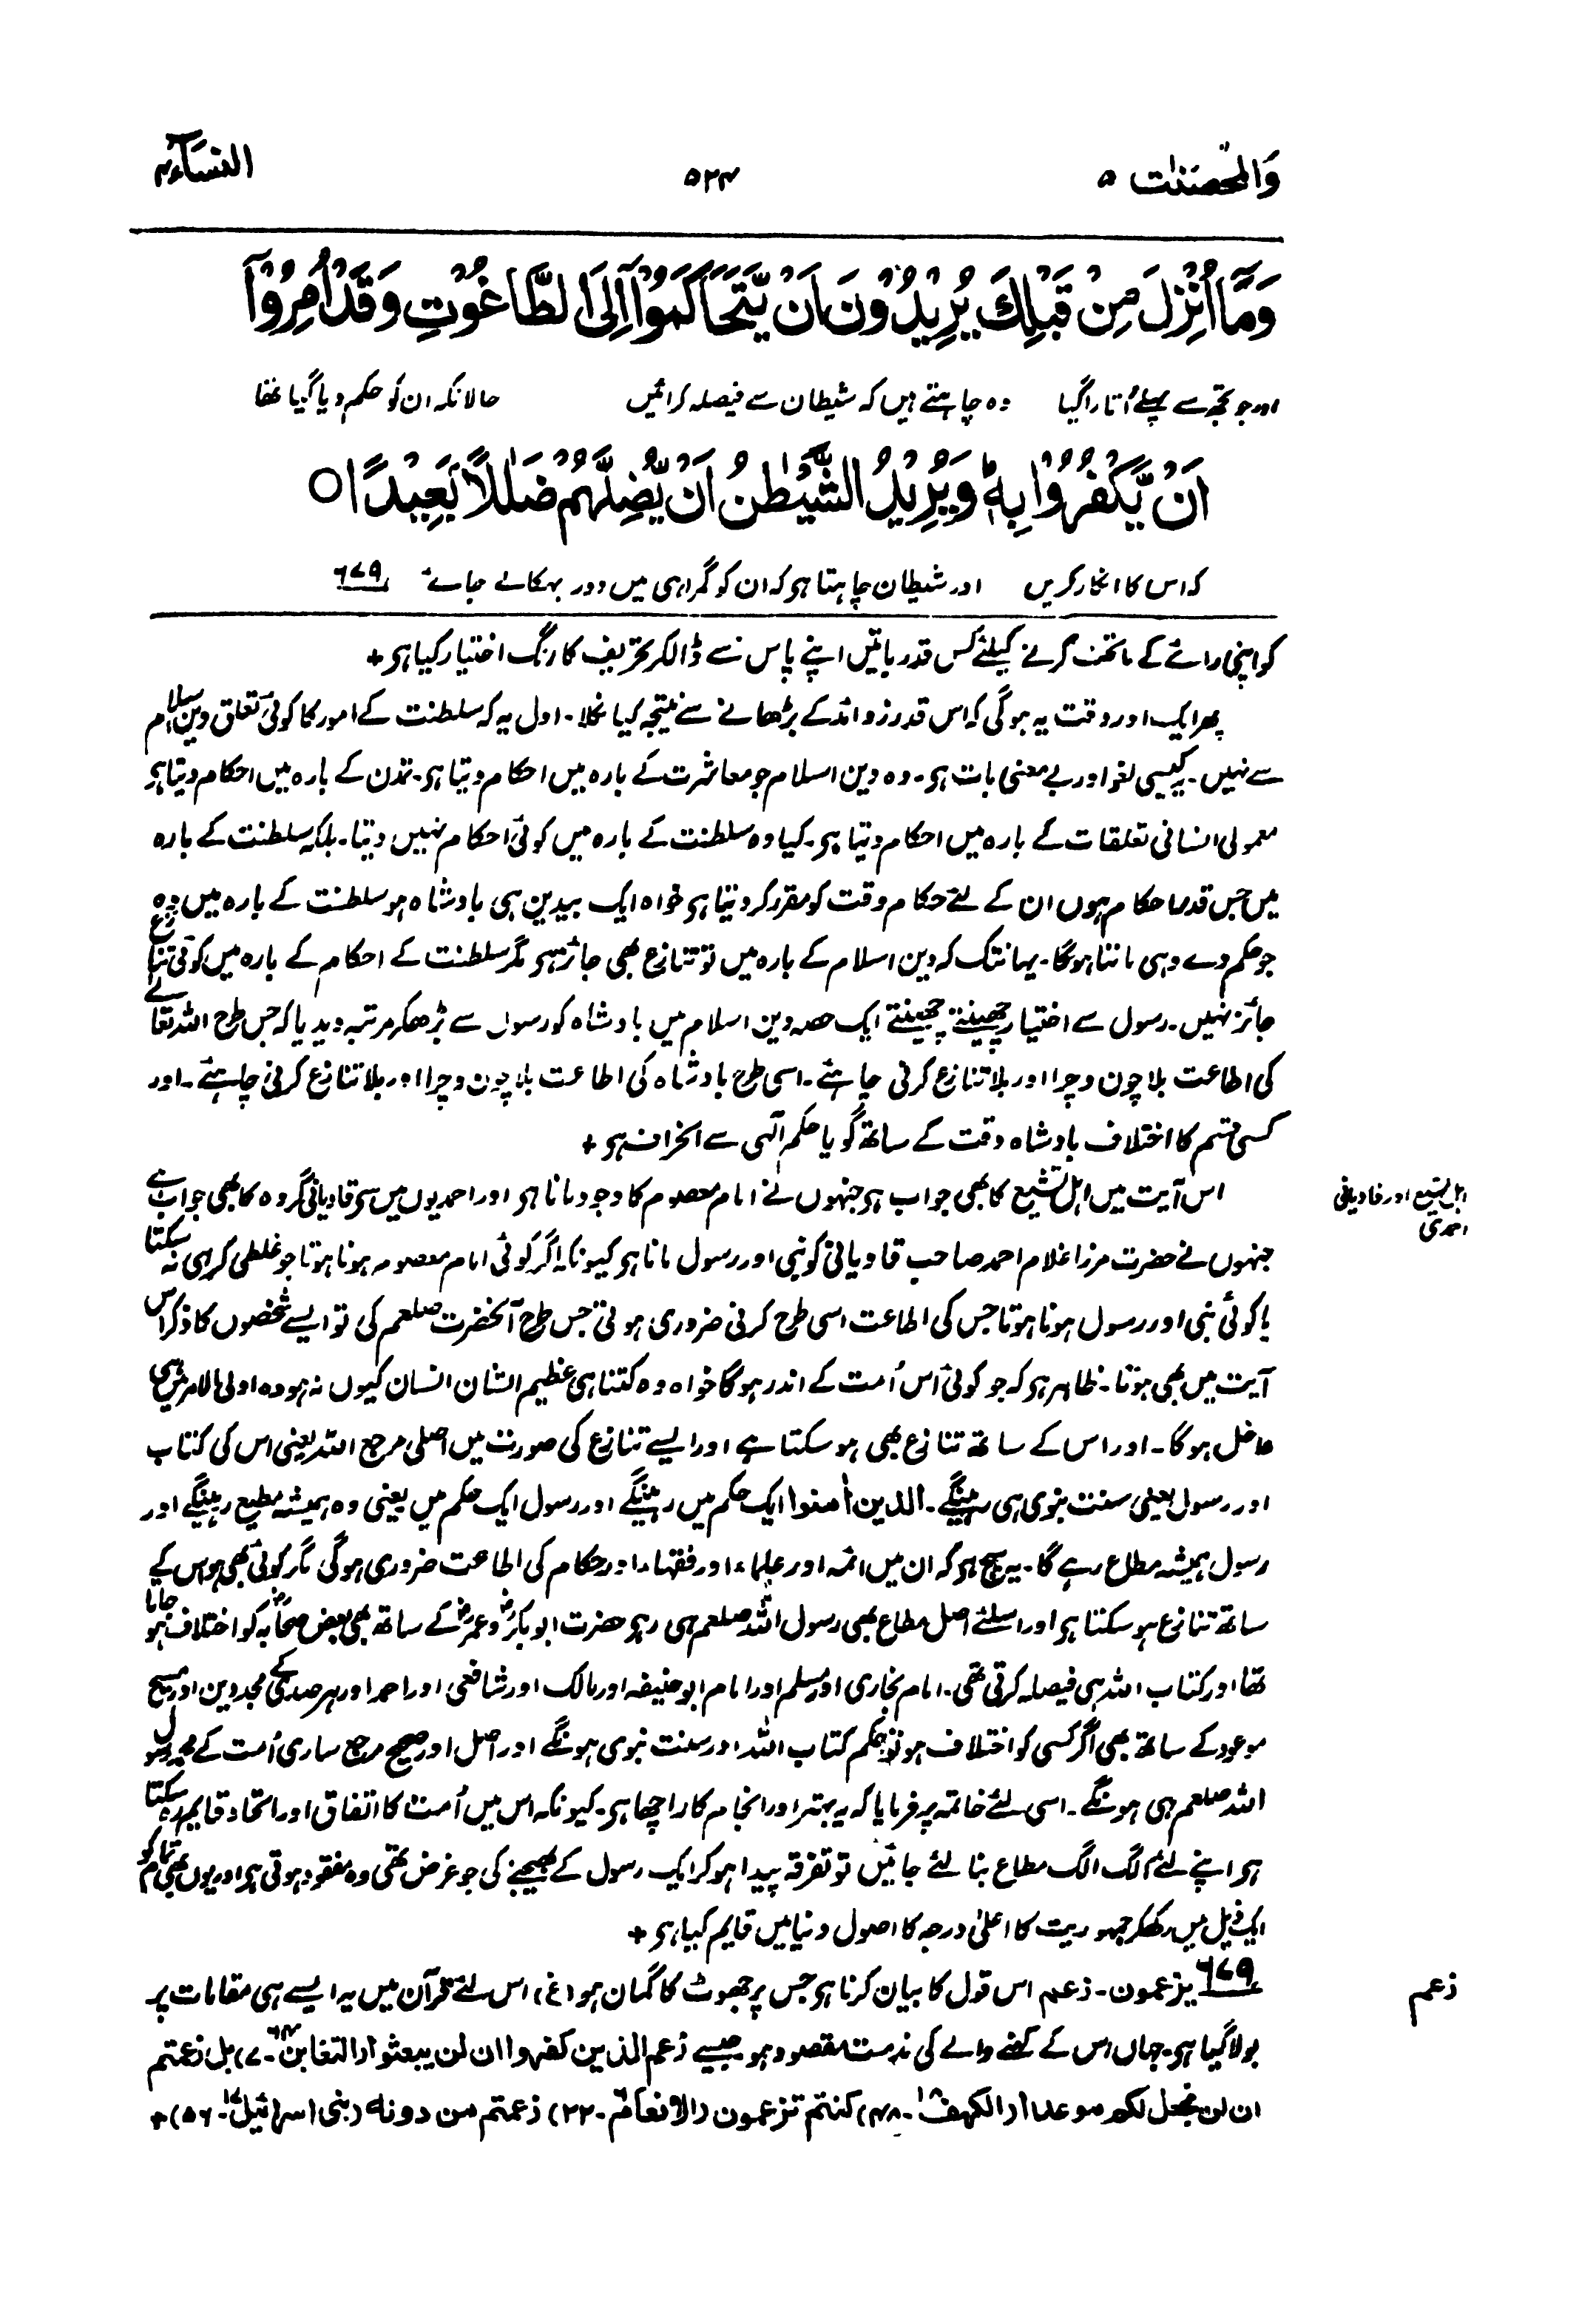 وَالْمُحْصَنٰت ۵
۵۲۴
النساء ۴
وَمَآ اُنْزِلَ مِنْ قَبْلِكَ يُرِيْدُوْنَ اَنْ يَّتَحَاكَمُوْۤا اِلَى الطَّاغُوْتِ وَقَدْ اُمِرُوْۤا
اور جو تجھ سے پہلے اُتارا گیا وہ چاہتے ہیں کہ شیطان سے فیصلہ کرائیں حالانکہ ان کو حکم دیا گیا تھا
اَنْ يَّكْفُرُوْا بِهٖ ؕ وَيُرِيْدُ الشَّيْطٰنُ اَنْ يُّضِلَّهُمْ ضَلٰلًاۢ بَعِيْدًا ○
کہ اس کا انکار کریں اور شیطان چاہتا ہر کہ ان کو گمراہی میں دور بہکائے جائے ۶۷۹
کو اپنی رائے کے ماتحت کرنے کیلئے کس قدر باتیں اپنے پاس سے ڈالکر تحریف کا رنگ اختیار کیا ہر +
پھر ایک اور دقت یہ ہوگی کہ اس قدر زوائد کے بڑھانے سے نتیجہ کیا نکلا۔ اول یہ کہ سلطنت کے امور کا کوئی تعلق دین اسلام
سے نہیں۔ یہ کیسی لغو اور بے معنی بات ہر۔ وہ دین اسلام جو معاشرت کے بارہ میں احکام دیتا ہر۔ تمدن کے بارہ میں احکام دیتا ہر
معمولی انسانی تعلقات کے بارہ میں احکام دیتا ہر۔ کیا وہ سلطنت کے بارہ میں کوئی احکام نہیں دیتا۔ بلکہ سلطنت کے بارہ
میں جس قدر احکام ہوں ان کے لئے حکام وقت کو مقرر کر دیتا ہر خواہ ایک بیدین ہی بادشاہ ہو سلطنت کے بارہ میں وہ
جو حکم دے وہی ماننا ہوگا۔ یہانتک کہ دین اسلام کے بارہ میں تو تنازع بھی جائز ہر مگر سلطنت کے احکام کے بارہ میں کوئی تنازع
جائز نہیں۔ رسول سے اختیار چھینتے چھینتے ایک حصہ دین اسلام میں بادشاہ کو رسول سے بڑھکر مرتبہ دیدیا کہ جس طرح اللہ تعالےٰ
کی اطاعت بلا چون و چرا اور بلا تنازع کرنی چاہئے۔ اسی طرح بادشاہ کی اطاعت بلا چون و چرا اور بلا تنازع کرنی چاہئے۔ اور
کسی قسم کا اختلاف بادشاہ وقت کے ساتھ گویا حکم الٰہی سے انحراف ہر +
اس آیت میں اہل تشیع کا بھی جواب ہر جنہوں نے امام معصوم کا وجود مانا ہر اور احمدیوں میں سے قادیانی گروہ کا بھی جواب ہے
اہل تشیع اور قادیانی
احمدی
جنہوں نے حضرت مرزا غلام احمد صاحب قادیانی کو نبی اور رسول مانا ہر کیونکہ اگر کوئی امام معصوم ہونا ہوتا جو غلطی کر ہی نہ سکتا
یا کوئی نبی اور رسول ہونا ہوتا جس کی اطاعت اسی طرح کرنی ضروری ہوتی جس طرح آنحضرت صلعم کی تو ایسے شخصوں کا ذکر اس
آیت میں بھی ہوتا۔ ظاہر ہر کہ جو کوئی اس اُمت کے اندر ہوگا خواہ وہ کتنا ہی عظیم الشان انسان کیوں نہ ہو وہ اولی الامر میں ہی
داخل ہوگا۔ اور اس کے ساتھ تنازع بھی ہو سکتا ہے اور ایسے تنازع کی صورت میں اصلی مرجع اللہ یعنی اس کی کتاب
اور رسول یعنی سنت نبوی ہی رہینگے۔ الذین اٰمنوا ایک حکم میں رہینگے اور رسول ایک حکم میں یعنی وہ ہمیشہ مطیع رہینگے اور
رسول ہمیشہ مطاع رہے گا۔ یہ سچ ہر کہ ان میں ائمہ اور علماء اور فقہاء اور حکام کی اطاعت ضروری ہوگی مگر کوئی بھی ہو اس کے
ساتھ تنازع ہو سکتا ہر اور اسلئے اصل مطاع بھی رسول اللہ صلعم ہی رہر حضرت ابوبکرؓ و عمرؓ کے ساتھ بھی بعض صحابہؓ کو اختلاف ہو جاتا
تھا اور کتاب اللہ ہی فیصلہ کرتی تھی۔ امام بخاری اور مسلم اور امام ابو حنیفہ اور مالک اور شافعی اور احمد اور ہر صدی کے مجددین اور مسیح
موعود کے ساتھ بھی اگر کسی کو اختلاف ہو تو حکم کتاب اللہ اور سنت نبوی ہونگے اور اصل اور صحیح مرجع ساری اُمت کے محمد رسول
اللہ صلعم ہی ہونگے۔ اسی لئے خاتمہ پر فرمایا کہ یہ بہتر اور انجام کار اچھا ہر۔ کیونکہ اس میں اُمت کا اتفاق اور اتحاد قایم رہ سکتا
ہر اپنے لئے الگ الگ مطاع بنا لئے جائیں تو تفرقہ پیدا ہو کر ایک رسول کے بھیجنے کی جو غرض تھی وہ مفقود ہوتی ہر اور یوں بھی تمام کو
ایک ذیل میں رکھکر جمہوریت کا اعلیٰ درجہ کا اصول دنیا میں قایم کیا ہر +
۶۷۹ یزعمون۔ زعم اس قول کا بیان کرنا ہر جس پر جھوٹ کا گمان ہو (غ) اس لئے قرآن میں یہ ایسے ہی مقامات پر
زعم
بولا گیا ہر۔ جہاں اس کے کہنے والے کی مذمت مقصود ہو۔ جیسے زعم الذین کفروا ان لن یبعثوا (التغابن ۶۴۔ ۷) بل زعتم
ان لن نجعل لکم موعدا (الکہف ۱۸۔ ۴۸) کنتم تزعمون (الانعام ۶۔ ۲۲) زعمتم من دونہ (بنی اسرائیل ۱۷۔ ۵۶) +